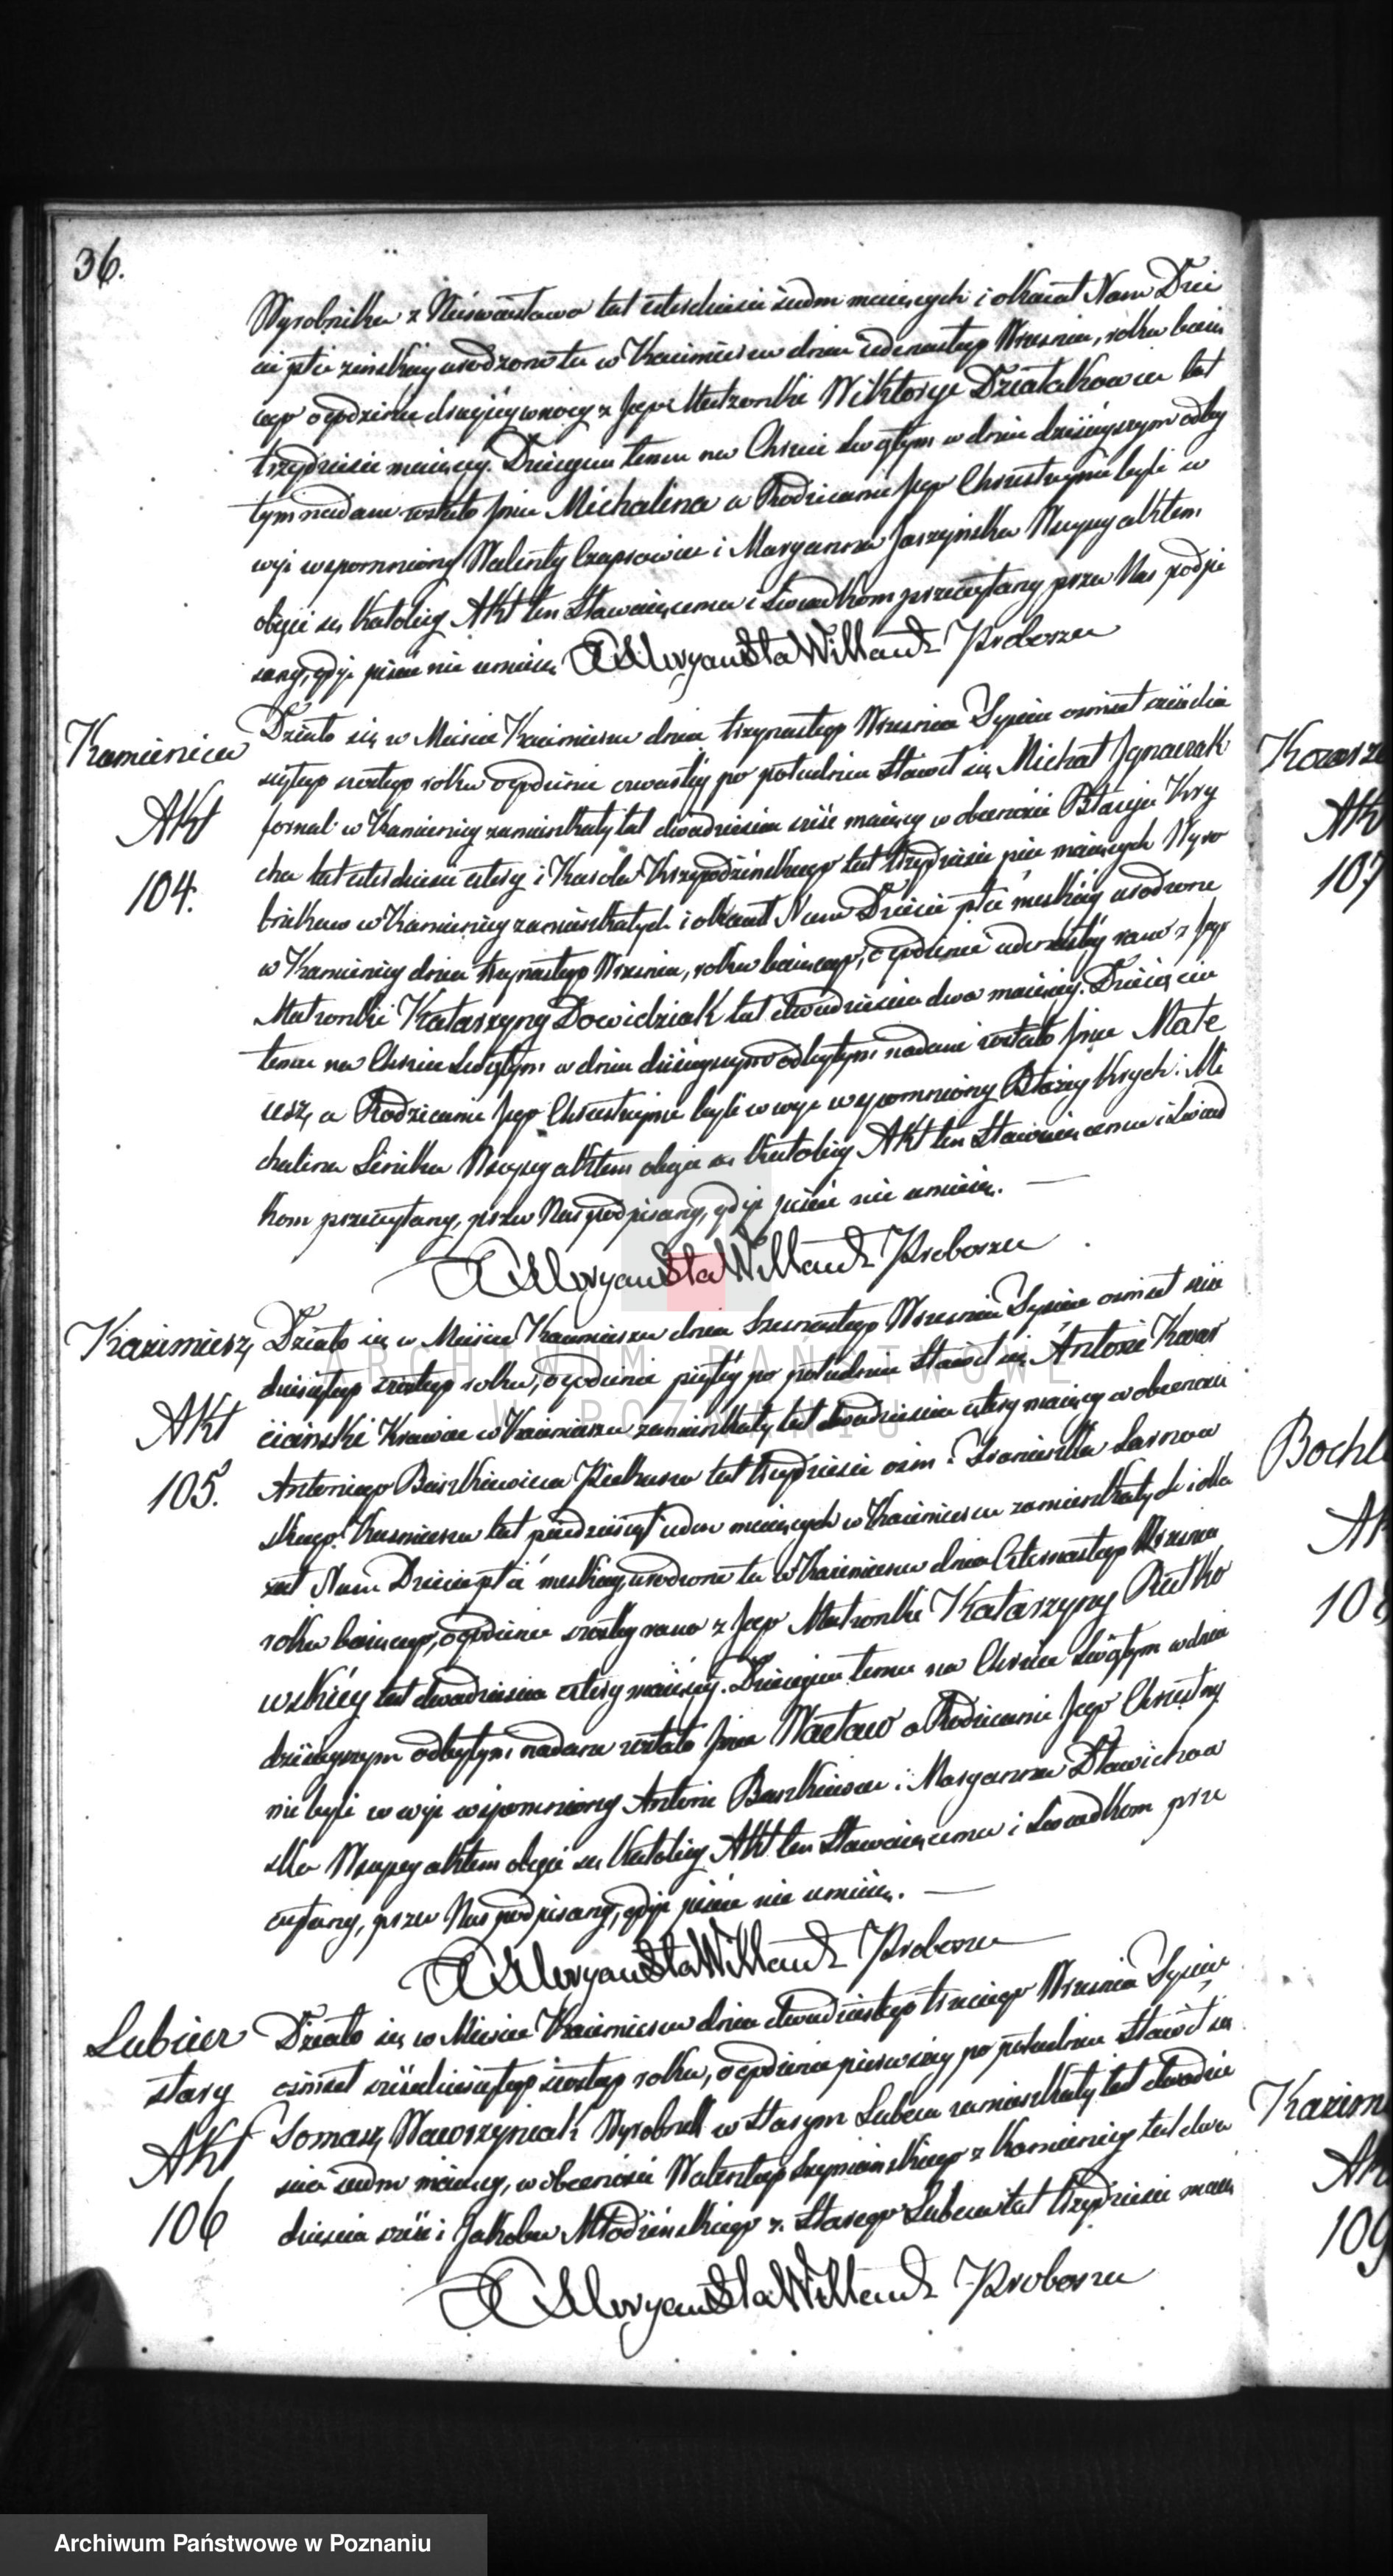 36.
Wyrobnika z Nieswiastowa lat czterdzieści siedm maiących i okazał Nam Dzie
cie płci żenskiey urodzone tu w Kazimierzu dnia iedenastego Wrzesnia, roku bieżą
cego o godzinie drugiey w nocy z Jego Małżonki Wiktoryi Działakowicz lat
trzydzieści maiącey. Dziecięciu temu na Chrzcie Swiętym w dniu dzisieyszym odby
tym nadane zostało Jmie Michalina a Rodzicami Jego Chrzestnymi byli w
wyż wspomniony Walenty Czapsowicz i Maryanna Jaszyńska Wszyscy aktem
obięci są Katolicy Akt ten Stawaiącemu i Swiadkom przeczytany przez Nas podpi
sany, gdyż pisać nie umieią Proboszcz
Kamienica
Akt
104.
Działo się w Mieście Kazimierzu dnia trzynastego Wrzesnia Tysiąc osmset sześćdzie
siątego szostego roku o godzinie czwartey po południu Stawił się Michał Jgnaczak
fornal w Kamienicy zamieszkały lat dwadzieścia sześć maiący w obecności Błażeja Kry
cha lat czterdzieści cztery i Karola Krzypodzińskiego lat trzydzieści pięć maiących Wyro
bników w Kamienicy zamieszkałych i okazał Nam Dziecie płci męskiey urodzone
w Kamienicy dnia trzynastego Wrzesnia, roku bieżącego, o godzinie iedenastey rano z Jego
Małżonki Katarzyny Dowidziak lat dwadzieścia dwa maiącey. Dziecięciu
temu na Chrzcie Swiętym w dniu dzisieyszym odbytym nadane zostało Jmie Mate
usz, a Rodzicami Jego Chrzestnymi byli w wyż wspomniony Błażey Krych i Mi
chalina Sinika Wszyscy aktem obięci są Katolicy Akt ten Stawaiącemu i Swiad
kom przeczytany, przez Nas podpisany, gdyż pisać nie umieią. —
Proboszcz
Kazimierz
Akt
105.
Działo się w Mieście Kazimierzu dnia Szesnastego Wrzesnia Tysiąc osmset sześć
dziesiątego szostego roku, o godzinie piątey po południu Stawił się Antoni Kwas
ciański Krawiec w Kazimierzu zamieszkały lat dwadzieścia cztery maiący w obecności
Antoniego Baszkiewicza lat trzydzieści osm i Franciszka Sarnow
skiego Kusmierza lat pięćdziesiąt ieden maiących w Kazimierzu zamieszkałych i oka
zał Nam Dziecie płci męskiey urodzone tu w Kazimierzu dnia Czternastego Wrzesnia
roku bieżącego, o godzinie szostey rano z Jego Małżonki Katarzyny Rutko
wskiéy lat dwadzieścia cztery maiącey. Dziecięciu temu na Chrzcie Swiętym w dniu
dzisieyszym odbytym nadane zostało Jmie Wacław a Rodzicami Jego Chrzestny
mi byli w wyż wspomniony Antoni Baszkiewicz i Maryanna Sławichow
ska Wszyscy aktem obięci są Katolicy Akt ten Stawaiącemu i Swiadkom prze
czytany, przez Nas podpisany, gdyż pisać nie umieią. —
Proboszcz
Lubicer
stary
Akt
106
Działo się w Mieście Kazimierzu dnia dwudziestego trzeciego Wrzesnia Tysiąc
osmset sześćdziesiątego szostego roku, o godzinie pierwszey po południu Stawił się
Tomasz Wawrzyniak Wyrobnik w Starym Lubczu zamieszkały lat dwadzie
scia siedm maiący, w obecności Walentego Szymańskiego z Kamienicy lat dwa
dzieścia sześć i Jakoba Młodzińskiego z Starego Lubcza lat trzydzieści maią
Proboszcz
Ak
107
Ak
Kazim
Ak
109
ARCHIWUM PAŃSTWOWE
W POZNANIU
Archiwum Państwowe w Poznaniu